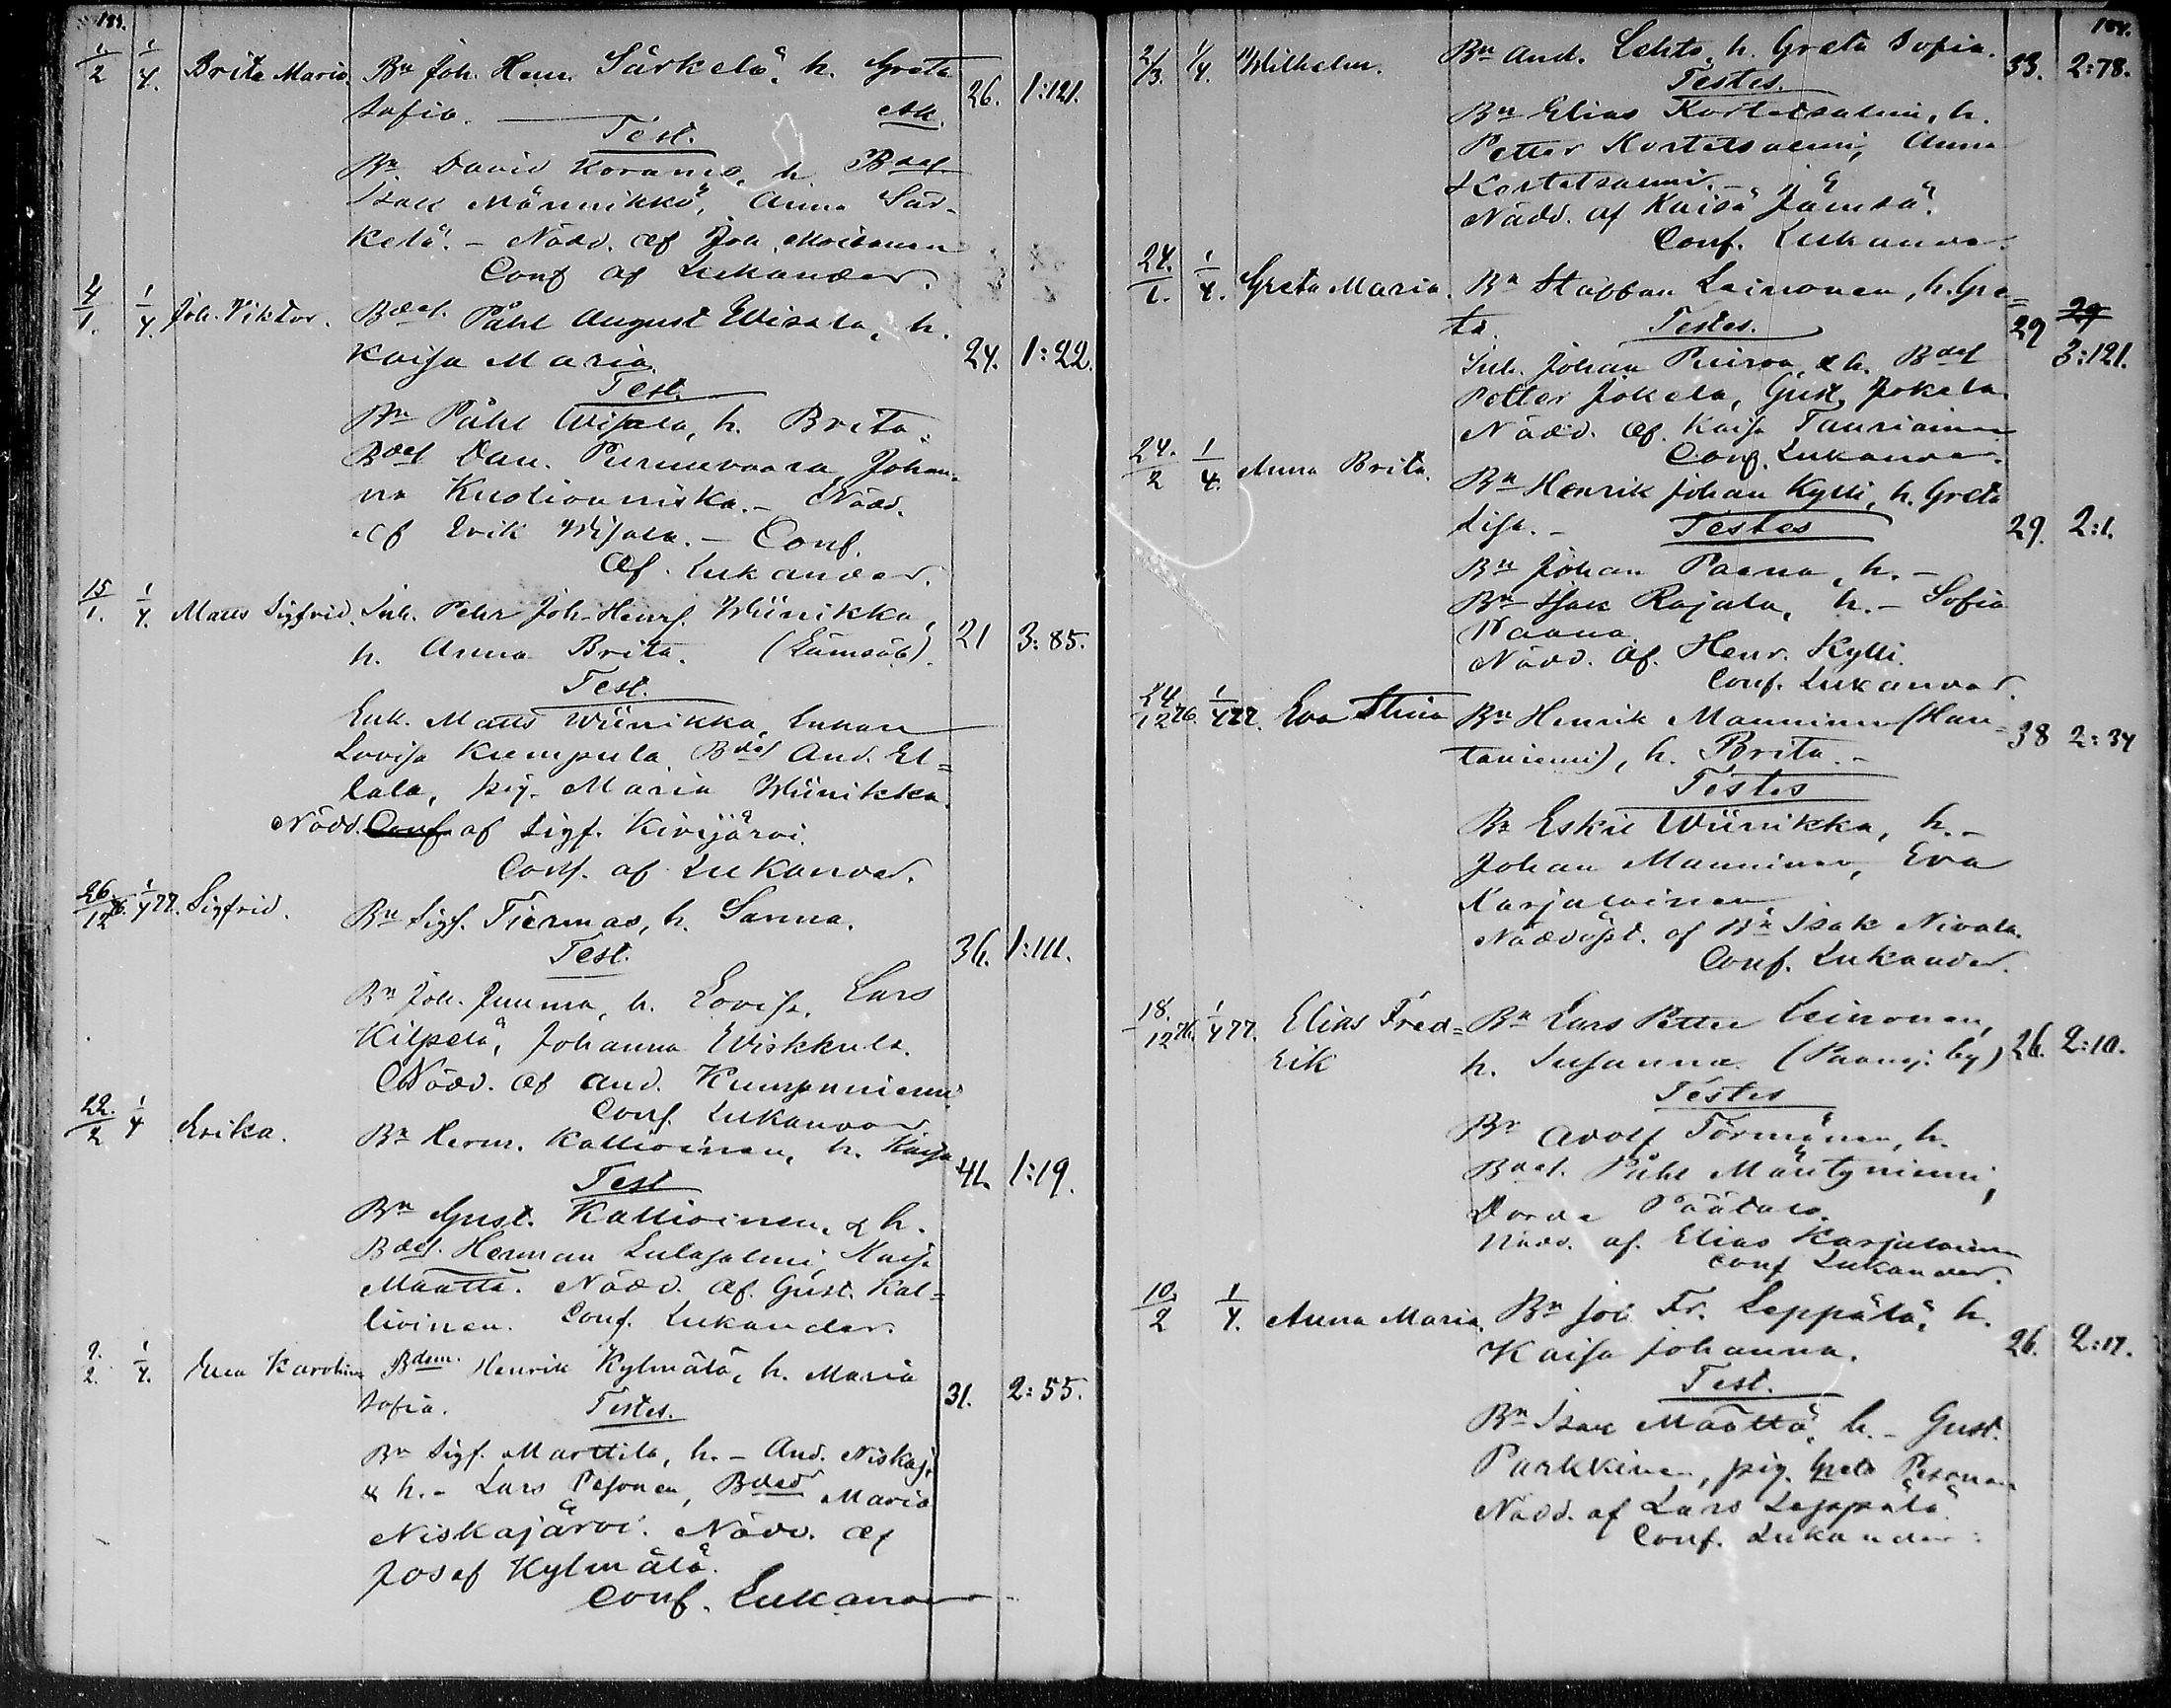 184.
1/2 1/4. Brita Maria. Bn Joh. Henr. Särkelä, h. Greta 26. 1:121.
Sofia.
Test.
Bn David Koramo, h. Bdes
Isak Männikkö, Anna Sär-
kelä. – Nödd. af Joh. Moilanen
Conf af Lukander.
4/1. 1/4. Joh. Viktor. Bdes. Påhl August Wisala, h. 24. 1:22.
Kaisa Maria.
Test.
Bn Påhl Wisala, h. Brita.
Bdes Dan. Purnuvaara, Johan-
na Kuolionniska. – Nödd.
af Erik Wisala. – Conf.
af. Lukander.
15/1. 1/4. Matts Sigfrid. Inh. Pehr Joh. Henrs. Wiinikka, 21 3:85.
h. Anna Brita. (Lämsäb).
Test.
Enk. Matts Wiinikka, Enkan
Lovisa Kumpula, Bdes And. El=
lala, pig. Maria Wiinikka.
Nödd. Conf af Sigf. Kivijärvi.
Conf. af Lukander.
26/12 76. 1/4 77. Sigfrid. Bn Sigf. Tiermas, h. Sanna. 36. 1:111.
Test.
Bn Joh. Juuma, h. Lovisa. Lars
Kilpelä, Johanna Wiskkula.
Nödd. af And. Kumpuniemi
Conf. Lukander
22./2 1/4 Erika. Bn Herm. Kallioinen, h. Kaisa 41. 1:19.
Test
Bn Gust. Kallioinen, & h.
Bdes. Herman Sulasalmi, Kaisa
Määttä. Nödd. af. Gust. Kal=
lioinen. Conf. Lukander.
2./2. 1/4. Eva Karolina Bdem. Henrik Kylmälä, h. Maria 31. 2:55.
Sofia. Testes.
Bn Sigf. Marttila, h. – And. Niskaj.
& h. – Lars Pesonen, Bded Maria
Niskajärvi. Nödd. af
Josef Kylmälä.
Conf. Lukander
184.
2/3. 1/4. Wilhelm. Bn And. Lehto, h. Greta Sofia. 33. 2:78.
Testes.
Bn Elias Kortetsalmi, h.
Petter Kortetsalmi, Anna
Kortetsalmi. –
Nödd. af Kaisa Jämsä.
Conf. Lukander.
24./1. 1/4. Greta Maria. Bn Staffan Leinonen, h. Gre= 29 29
ta. Testes. 3:121.
Inh. Johan Puiroa, & h. Bdes
Petter Jokela, Gust. Jokela.
Nödd. af. Kaisa Tauriainen
Conf. Lukander.
24./2 1/4. Anna Brita. Bn Henrik Johan Kylli, h. Greta
Lisa. – Testes 29. 2:1.
Bn Johan Paana, h. –
Bn Isak Rajala, h. – Sofia
Paana
Nödd. af. Henr. Kylli.
Conf. Lukander.
24/12 76. 1/4 77. Eva Stina Bn Henrik Manninen (Hau= 38 2:34
taniemi), h. Brita. –
Testes
Bn Eskil Wiinikka, h. –
Johan Manninen, Eva
Karjalainen.
Nöddöpt. af Bn Isak Nivala.
Conf. Lukander.
18./12 76. 1/4 77. Elias Fred= Bn Lars Petter Leinonen, 26. 2:10.
rik h. Susanna (Paanaj. by)
Testes
Bn Adolf Törmänen, h.
Bdes. Påhl Mäntyniemi,
Dorde Päätalo.
Nödd. af. Elias Karjalainen
Conf Lukander.
10./2 1/4. Anna Maria. Bn Joh. Fr. Leppälä, h. 26. 2:17.
Kaisa Johanna.
Test.
Bn Isak Määttä, h. – Gust.
Parkkinen, pig. Greta Pesonen
Nödd. af Lars Leppälä
Conf. Lukander.